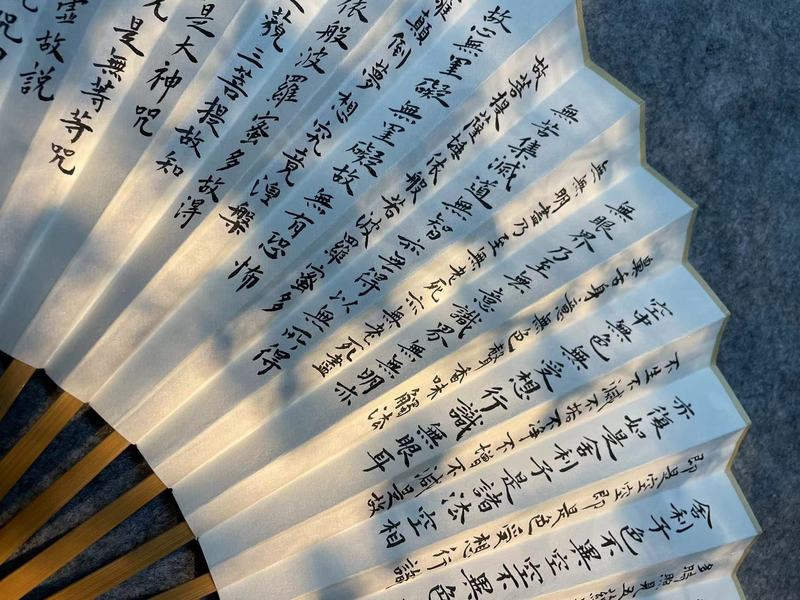 多時照見五蘊
舍利子色不異空空不異色
即是空空即是色受想行識
亦復如是舍利子是諸法空相
不生不滅不垢不淨不增不減是故
空中無色無受想行識無眼耳
鼻舌身意無色聲香味觸法
無眼界乃至無意識界無無明亦
無無明盡乃至無老死亦無老死盡
無苦集滅道無智亦無得以無所得
故菩提薩埵依般若波羅蜜多
故心無罣礙無罣礙故無有恐怖
離顛倒夢想究竟涅槃
依般波羅蜜多故得
藐三菩提故知
是大神咒
咒是無等等咒
虛故說
咒